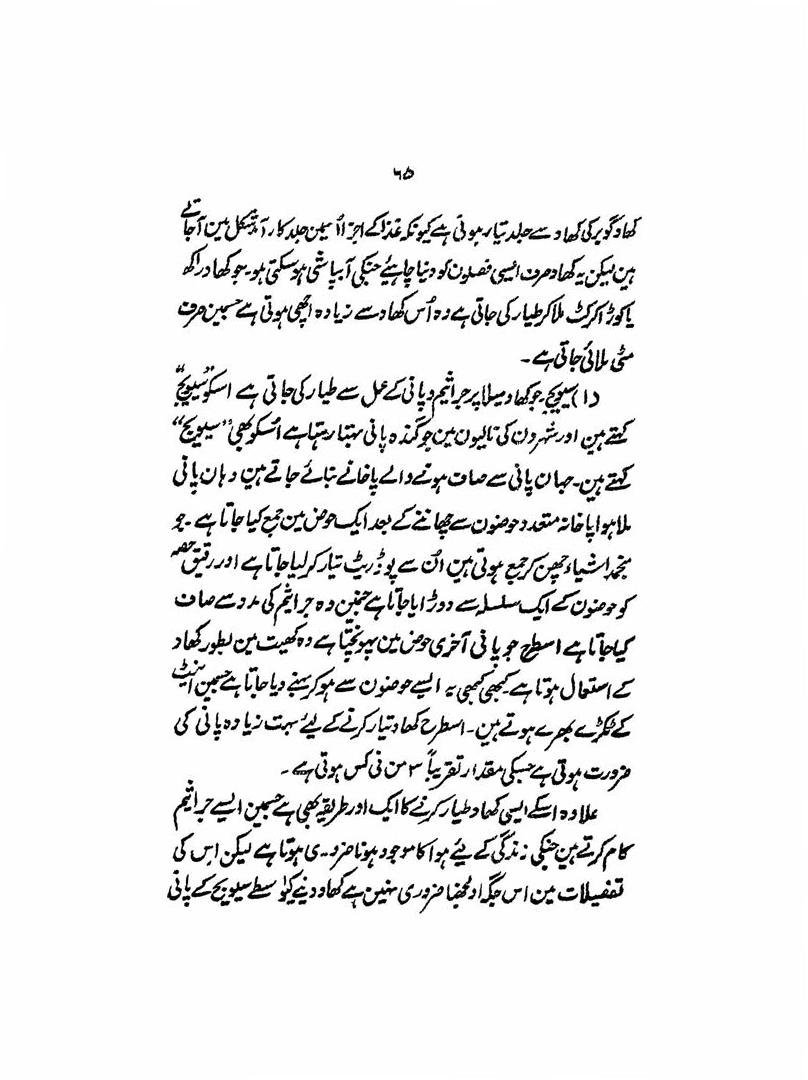 ۶۵
کھاد گوبر کی کھاد سے جلد تیار ہوتی ہے کیونکہ غذا کے اجزا اسمین جلد کار آمد شکل مین آجاتے
ہین لیکن یہ کھاد صرف ایسی فصلون کو دینا چاہئے جنکی آبپاشی ہوسکتی ہو۔ جو کھاد راکھ
یا کوڑا کرکٹ ملا کر طیار کی جاتی ہے وہ اُس کھاد سے زیادہ اچھی ہوتی ہے جسمین صرف
مٹی ملائی جاتی ہے۔
(۱) سیویج۔ جو کھاد میلا پر جراثیم و پانی کے عمل سے طیار کی جاتی ہے اسکو "سیویج"
کہتے ہین اور شہرون کی نالیون مین جو گندہ پانی بہتا رہتا ہے اُسکو بھی "سیویج"
کہتے ہین۔ جہان پانی سے صاف ہونے والے پاخانے بنائے جاتے ہین وہان پانی
ملا ہوا پاخانہ متعدد حوضون سے چھاننے کے بعد ایک حوض مین جمع کیا جاتا ہے۔ جو
منجمد اشیاء چھن کر جمع ہوتی ہین اُن سے پوڈریٹ تیار کر لیا جاتا ہے اور رقیق حصہ
کو حوضون کے ایک سلسلہ سے دوڑایا جاتا ہے جنمین وہ جراثیم کی مدد سے صاف
کیا جاتا ہے اسطرح جو پانی آخری حوض مین پہونچتا ہے وہ کھیت مین بطور کھاد
کے استعمال ہوتا ہے کبھی کبھی یہ ایسے حوضون سے ہو کر بہنے دیا جاتا ہے جسمین اینٹ
کے ٹکڑے بھرے ہوتے ہین۔ اسطرح کھاد تیار کرنے کے لیئے بہت زیادہ پانی کی
ضرورت ہوتی ہے جسکی مقدار تقریباً ۳ من فی کس ہوتی ہے۔
علاوہ اسکے ایسی کھاد طیار کرنے کا ایک اور طریقہ بھی ہے جسمین ایسے جراثیم
کام کرتے ہین جنکی زندگی کے لیئے ہوا کا موجود ہونا ضروری ہوتا ہے لیکن اس کی
تفصیلات مین اس جگہ اولجھنا ضروری نہین ہے کھاد دینے کیواسطے سیویج کے پانی